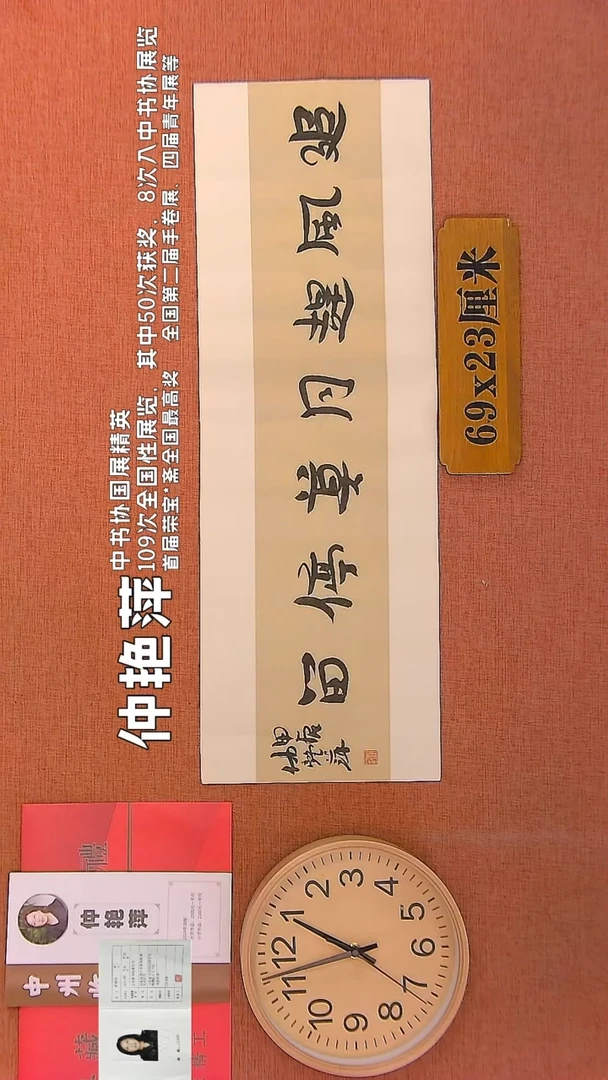 仲艳萍
中书协国展精英
109次全国性展览，其中50次获奖，8次入中书协展览
首届荣宝*斋全国最高奖 全国第二届手卷展、四届青年展等
追風趕月莫停留
甲辰
仲艳萍
69x23厘米
仲艳萍
中州
藏
12
1
2
3
4
5
6
7
8
9
10
11